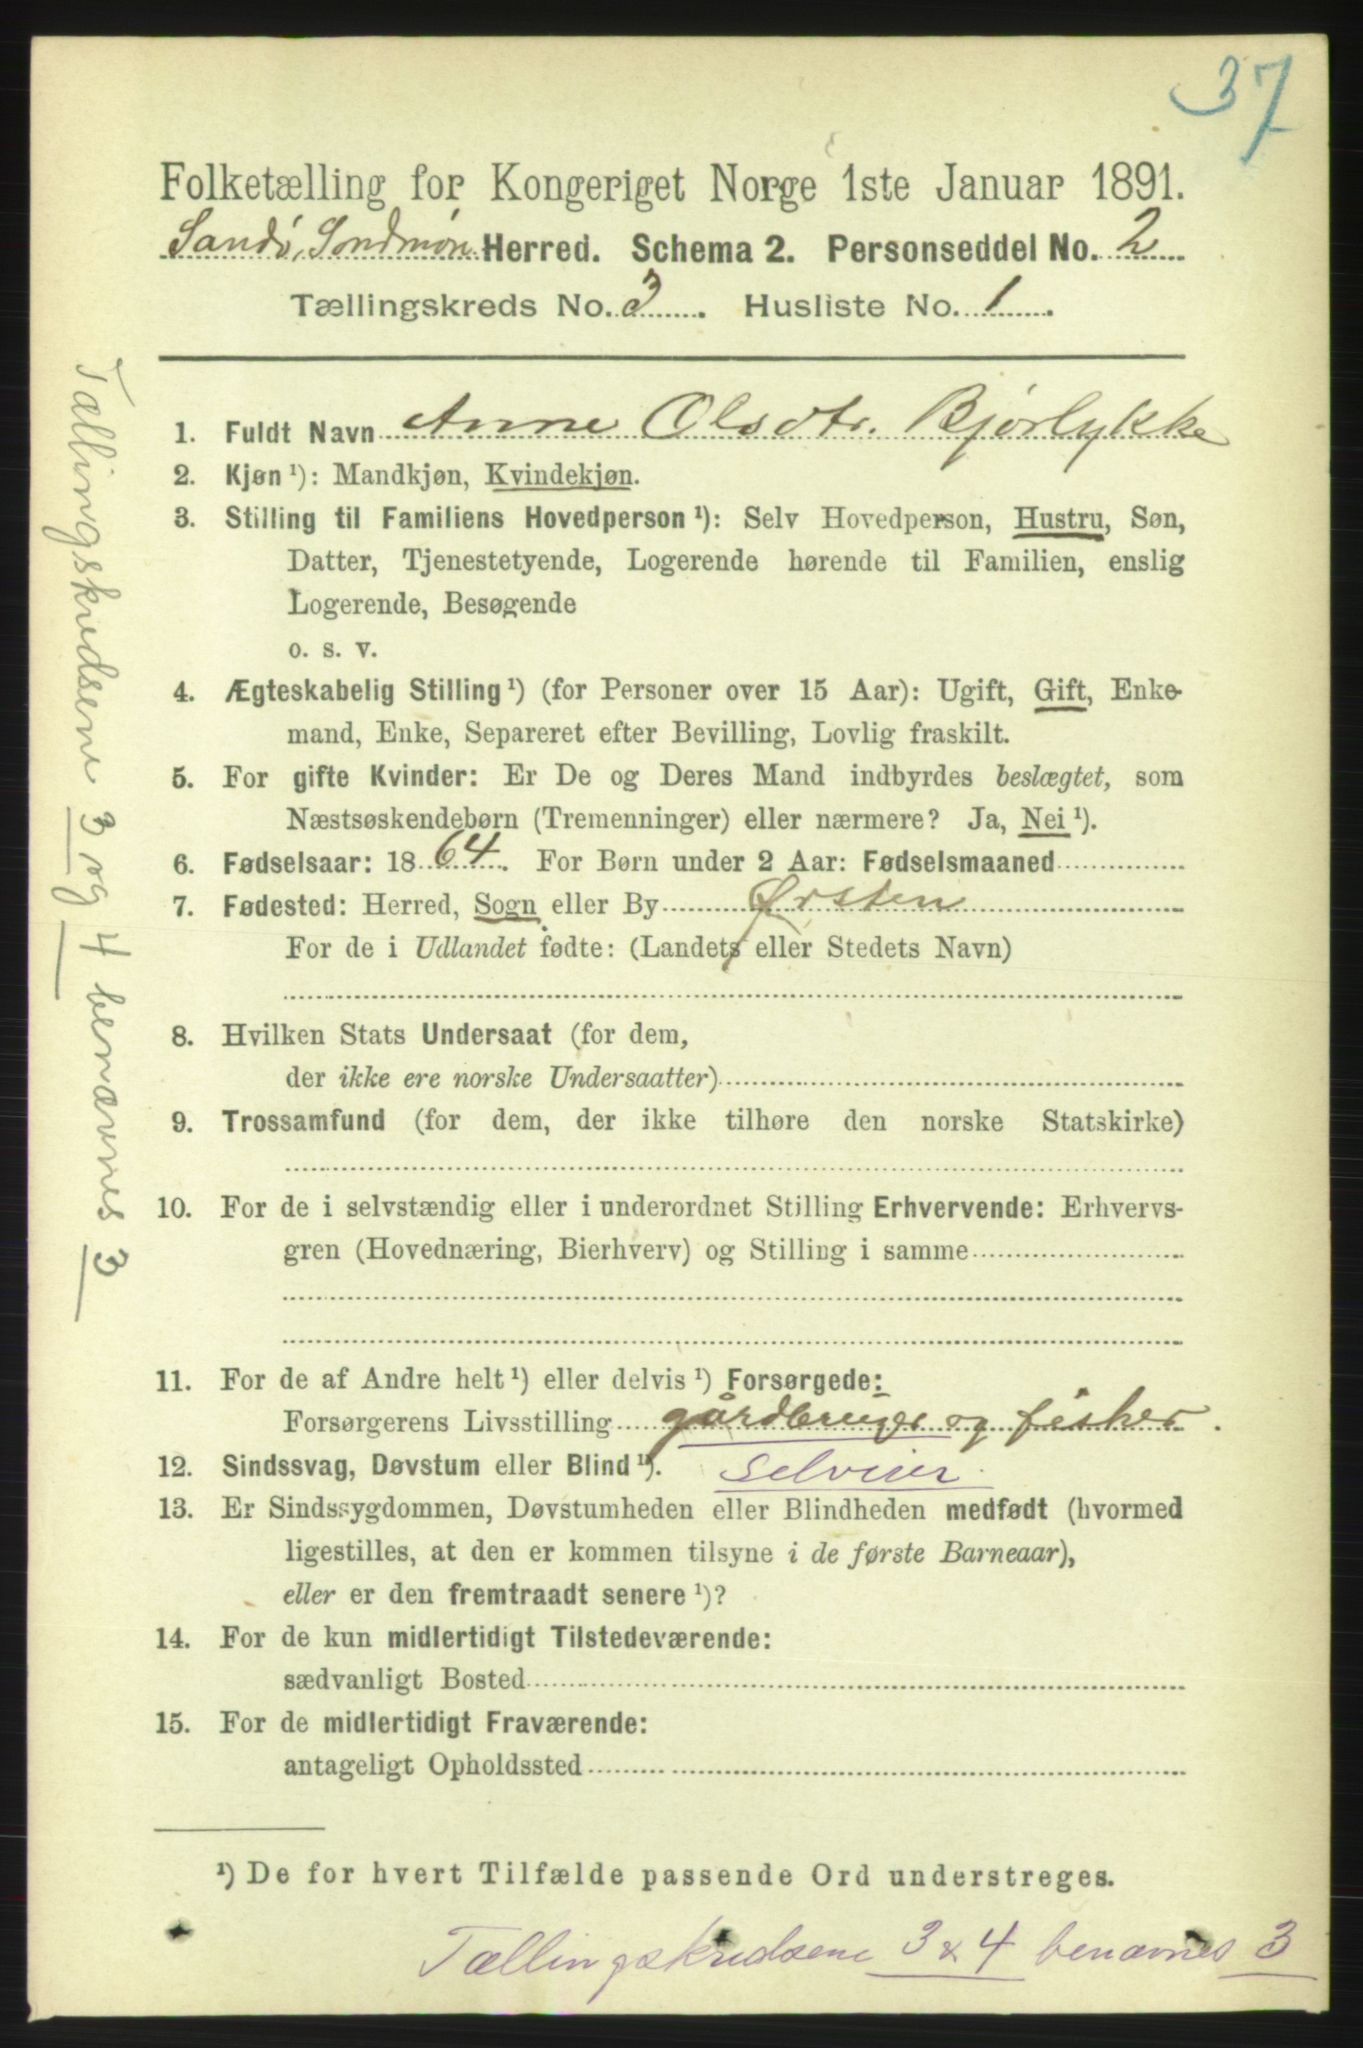 37
Folketælling for Kongeriget Norge 1ste Januar 1891.
Sandø, Søndmør Herred. Schema 2. Personseddel No. 2
Tællingskreds No. 3. Husliste No. 1.
1. Fuldt Navn Anne Olsdtr. Bjørlykke
2. Kjøn ¹): Mandkjøn, Kvindekjøn.
3. Stilling til Familiens Hovedperson ¹): Selv Hovedperson, Hustru, Søn,
Datter, Tjenestetyende, Logerende hørende til Familien, enslig
Logerende, Besøgende
o. s. v.
4. Ægteskabelig Stilling ¹) (for Personer over 15 Aar): Ugift, Gift, Enke-
mand, Enke, Separeret efter Bevilling, Lovlig fraskilt.
5. For gifte Kvinder: Er De og Deres Mand indbyrdes beslægtet, som
Næstsøskendebørn (Tremenninger) eller nærmere? Ja, Nei ¹).
6. Fødselsaar: 1864. For Børn under 2 Aar: Fødselsmaaned
7. Fødested: Herred, Sogn eller By Ørsten
For de i Udlandet fødte: (Landets eller Stedets Navn)
8. Hvilken Stats Undersaat (for dem,
der ikke ere norske Undersaatter)
9. Trossamfund (for dem, der ikke tilhøre den norske Statskirke)
10. For de i selvstændig eller i underordnet Stilling Erhvervende: Erhvervs-
gren (Hovednæring, Bierhverv) og Stilling i samme
11. For de af Andre helt ¹) eller delvis ¹) Forsørgede:
Forsørgerens Livsstilling gårdbruger og fisker.
12. Sindssvag, Døvstum eller Blind ¹). selveier.
13. Er Sindssygdommen, Døvstumheden eller Blindheden medfødt (hvormed
ligestilles, at den er kommen tilsyne i de første Barneaar),
eller er den fremtraadt senere ¹)?
14. For de kun midlertidigt Tilstedeværende:
sædvanligt Bosted
15. For de midlertidigt Fraværende:
antageligt Opholdssted
¹) De for hvert Tilfælde passende Ord understreges.
Tællingskredsene 3 & 4 benævnes 3
Tællingskredsene 3 og 4 benævnes 3